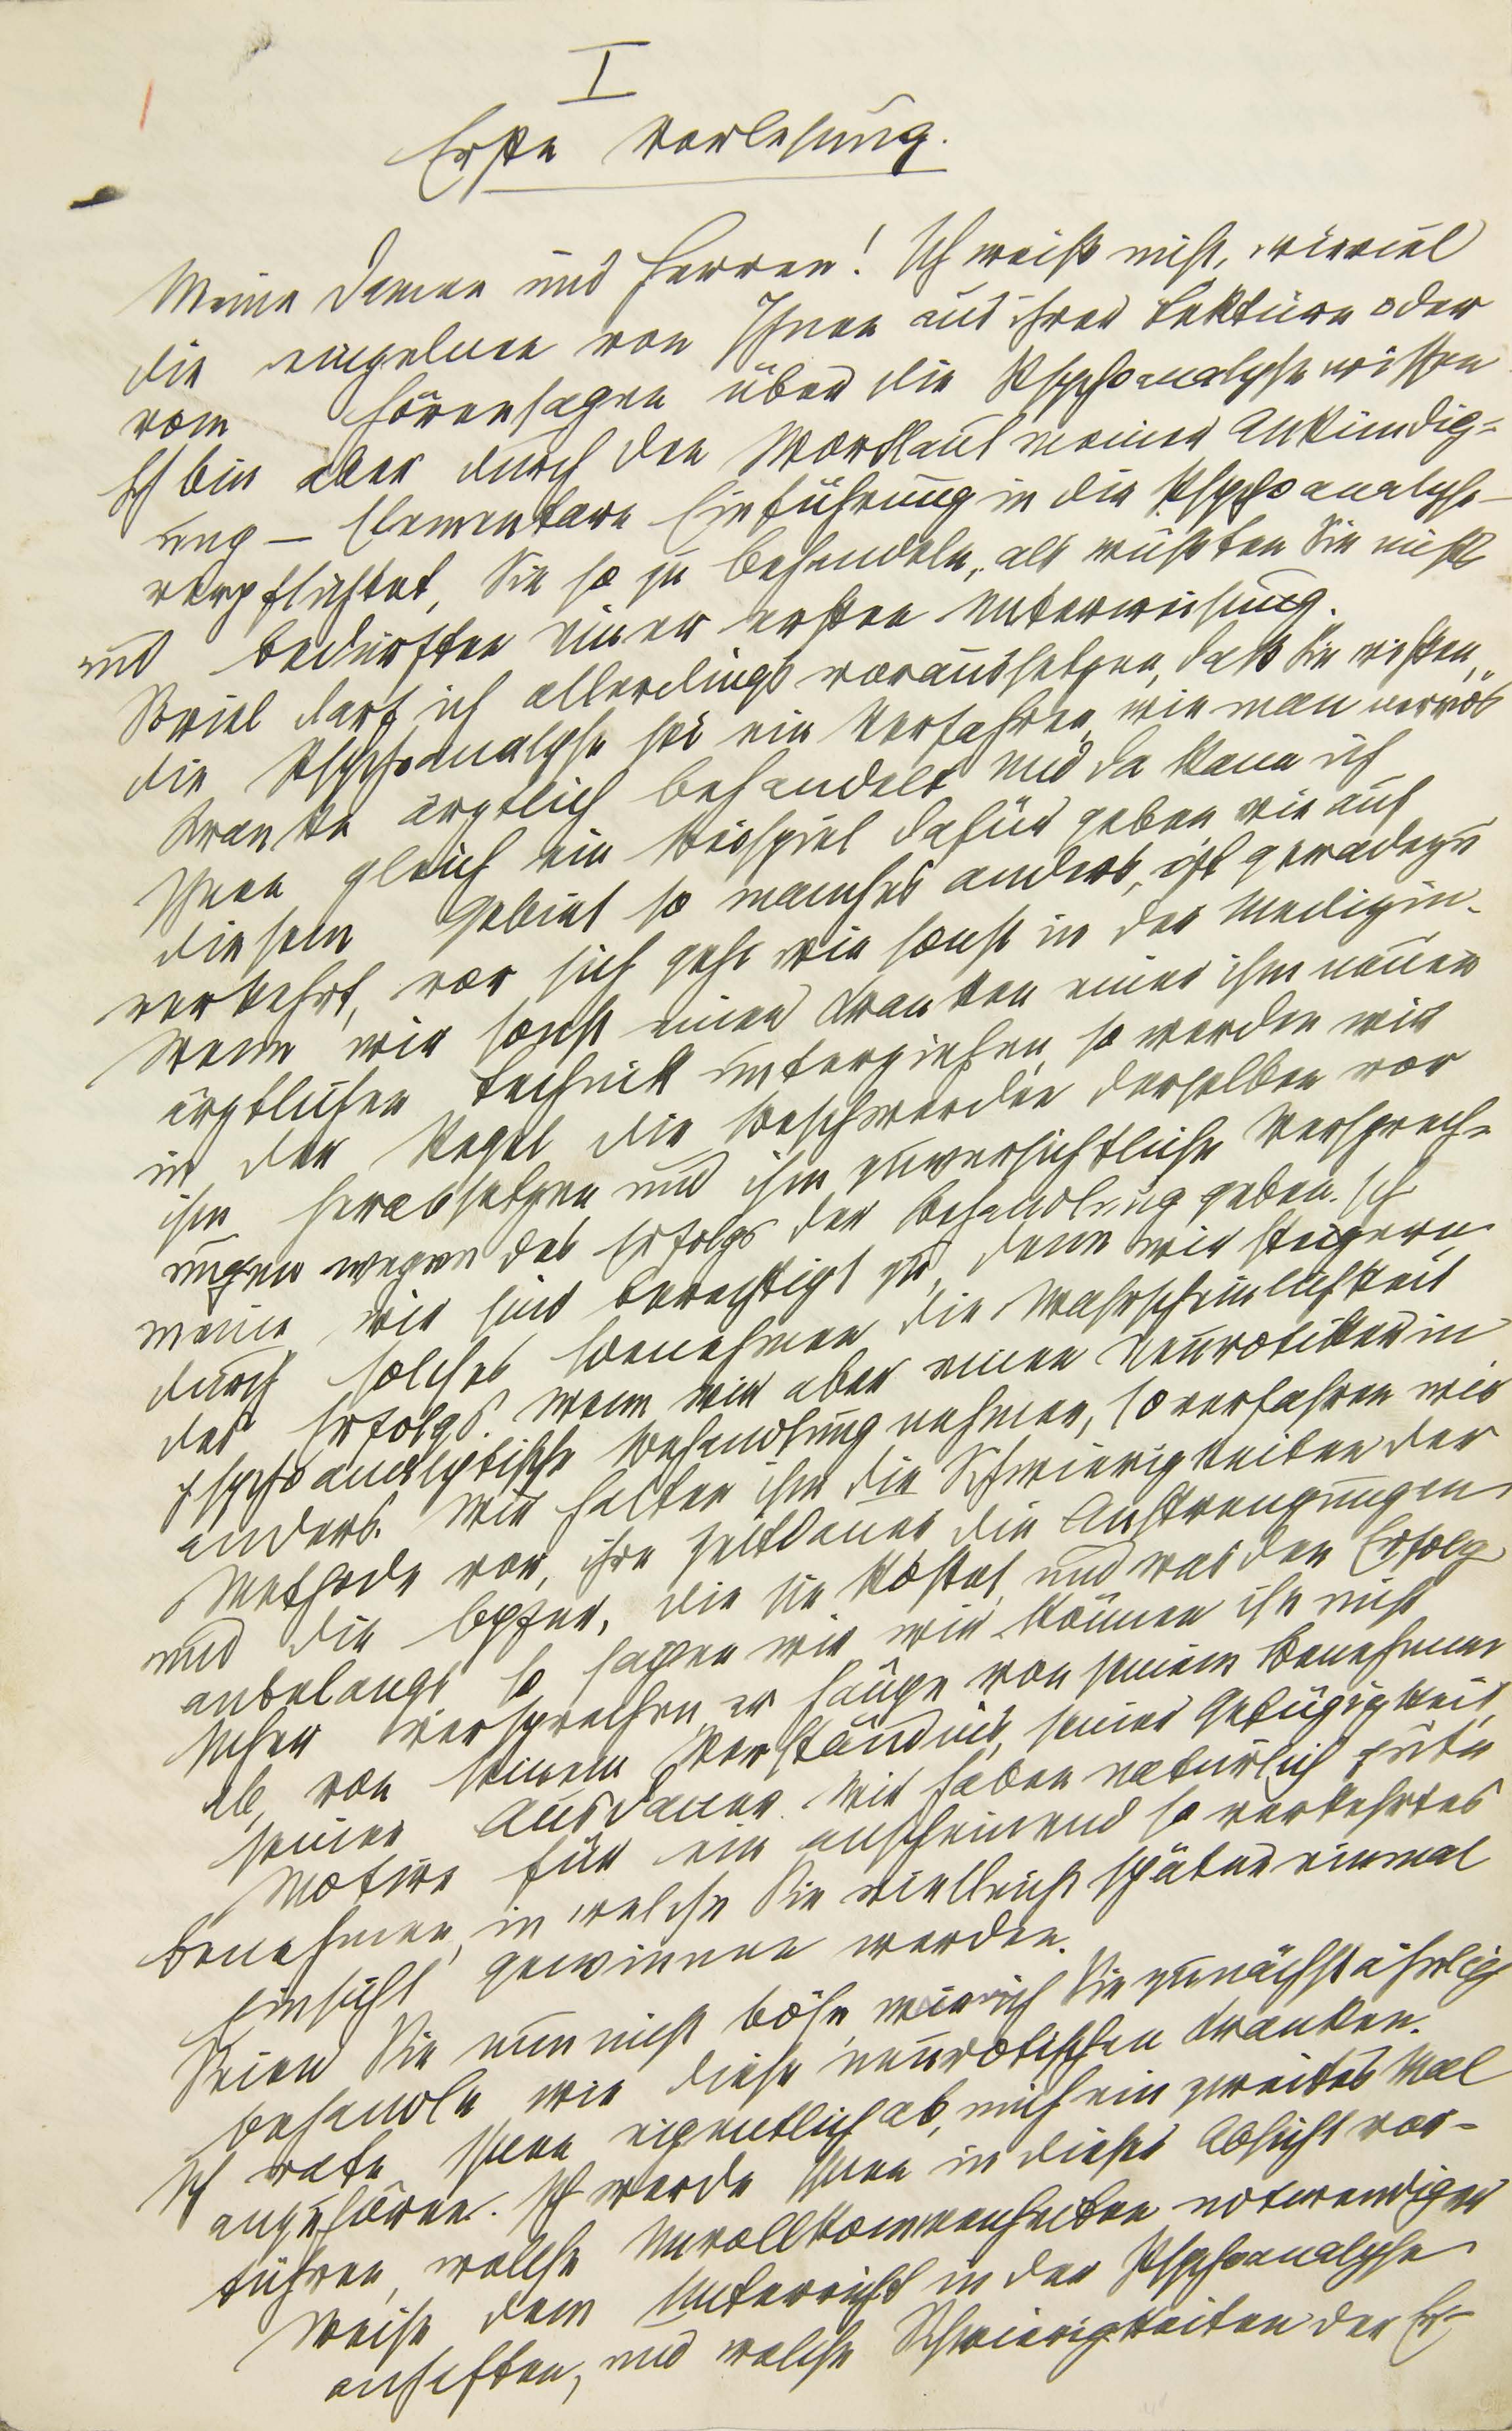 I
Erste Vorlesung.
Meine Damen und Herren! Ich weiß nicht, wieviel
die einzelnen von Ihnen aus ihrer Lektüre oder
vom Hörensagen über die Psychoanalyse wissen
Ich bin aber durch den Wortlaut meiner Ankündig-
ung – Elementare Einführung in die Psychoanalyse –
verpflichtet, Sie so zu behandeln, als wüßten Sie nichts
und bedürften einer ersten Unterweisung.
Soviel darf ich allerdings voraussetzen, daß Sie wissen,
die Psychoanalyse sei ein Verfahren, wie man nervös
Kranke ärztlich behandelt und da kann ich
Ihnen gleich ein Beispiel dafür geben wie auf
diesem Gebiet so manches anders, oft geradezu
verkehrt, vor sich geht wie sonst in der Medizin.
Wenn wir sonst einen Kranken einer ihm neuen
ärztlichen Technik unterziehen, so werden wir
in der Regel die Beschwerden derselben vor
ihm herabsetzen und ihm zuversichtliche Versprech-
ungen wegen des Erfolgs der Behandlung geben. Ich
meine wir sind berechtigt zu, denn wir steigern
durch solches Benehmen die Wahrscheinlichkeit
des Erfolgs. Wenn wir aber einen Neurotiker in
psychoanalytische Behandlung nehmen, so verfahren wir
anders. Wir halten ihm die Schwierigkeiten der
Methode vor, ihre Zeitdauer die Anstrengungen
und die Opfer, die sie kostet, und was den Erfolg
anbelangt so sagen wir wir können ihn nicht
sicher versprechen, er hänge von seinem Benehmen
ab, von seinem Verständnis, seiner Gefügigkeit,
seiner Ausdauer. Wir haben natürlich gute
Motive für ein anscheinend so verkehrtes
Benehmen, in welche Sie vielleicht später einmal
Einsicht gewinnen werden.
Seien Sie nun nicht böse, wenn ich Sie zunächst ähnlich
behandle wie diese neurotischen Kranken.
Ich rate Ihnen eigentlich ab, mich ein zweites Mal
anzuhören. Ich werde Ihnen in dieser Absicht vor-
führen, welche Unvollkommenheiten notwendiger
Weise dem Unterricht in der Psychoanalyse
anhaften, und welche Schwierigkeiten der Er-